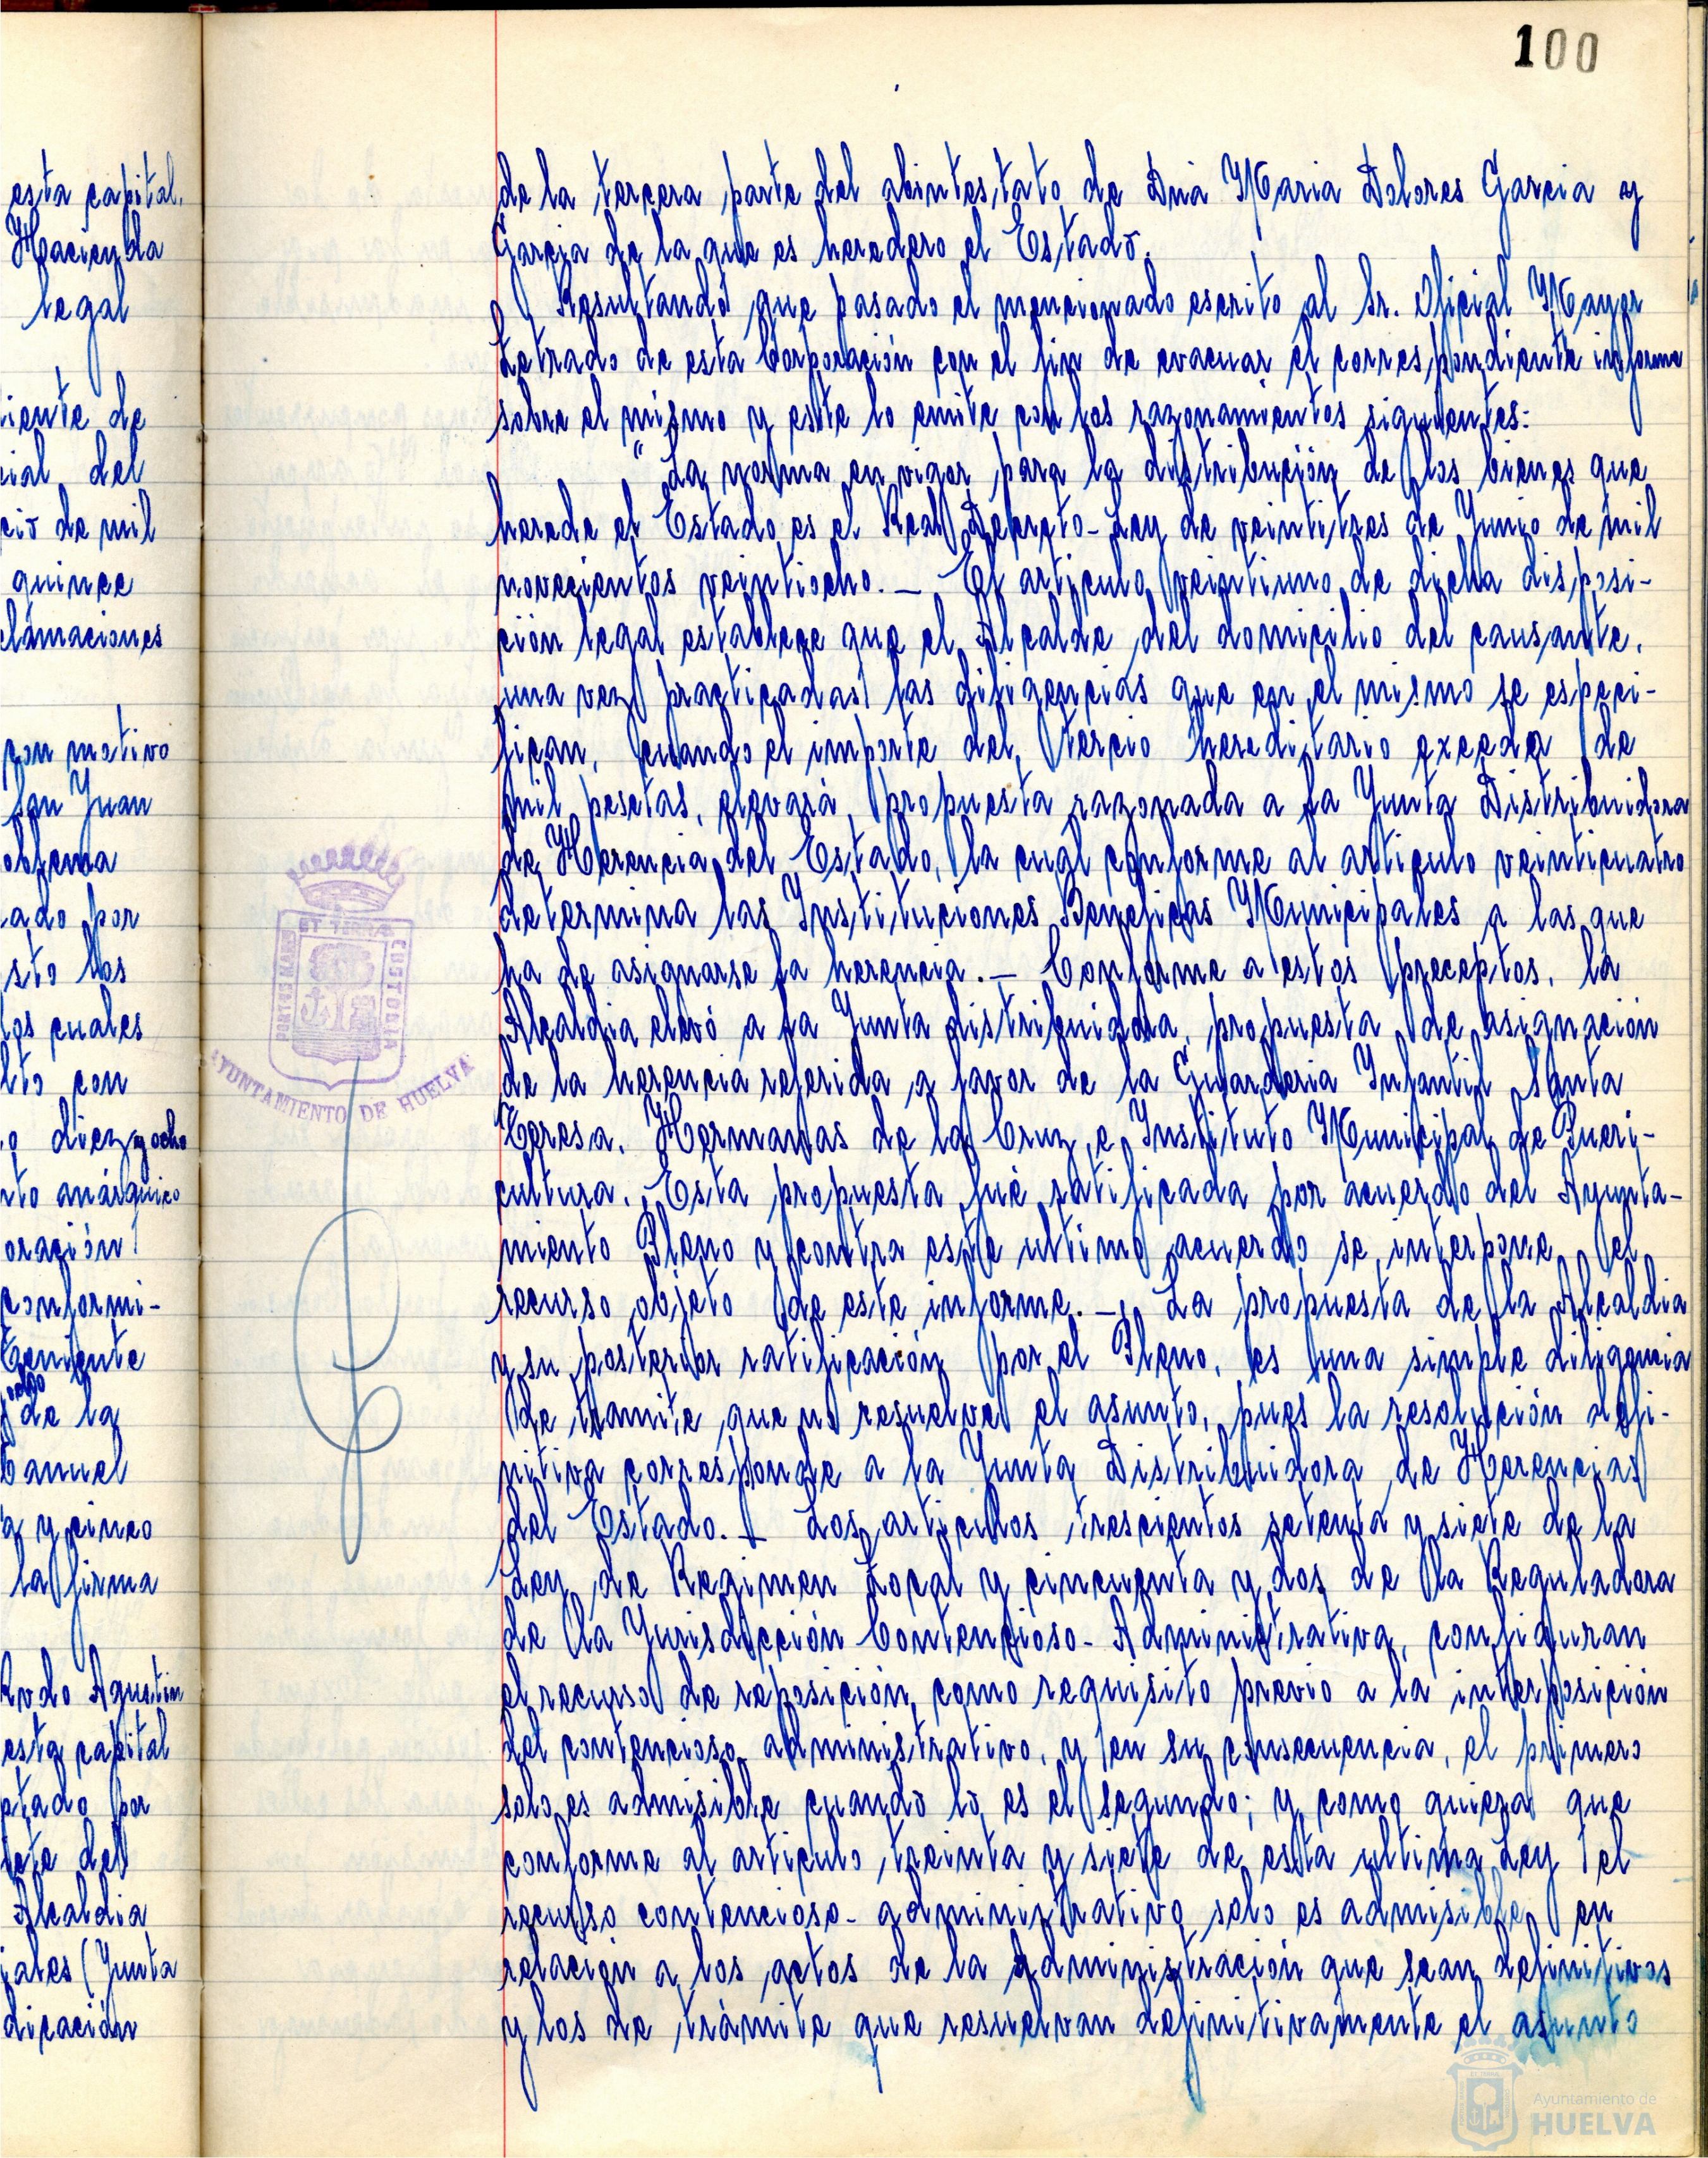 100
esta capital.
Hacienda
legal
iente de
cial del
cio de mil
quince
clamaciones
con motivo
San Juan
ado por
sto los
los cuales
lto con
o diez y ocho
nto anárquico
oración
conformi-
Teniente
de la
Manuel
a y cinco
la firma
Rvdo Agustin
esta capital
ptado por
Alcaldia
iales (Junta
dicación
de la tercera parte del abintestato de Dña Maria Dolores Garcia y
Garcia de la que es heredero el Estado.
Resultando que pasado el mencionado escrito al Sr. Oficial Mayor
Letrado de esta Corporación con el fin de evacuar el correspondiente informe
sobre el mismo y este lo emite con los razonamientos siguientes:
"La norma en vigor para la distribución de los bienes que
hereda el Estado es el Real Decreto-Ley de veintitres de Junio de mil
novecientos veintiocho. — El articulo veintiuno de dicha disposi-
ción legal establece que el Alcalde del domicilio del causante,
una vez practicadas las diligencias que en el mismo se especi-
fican, cuando el importe del tercio hereditario exceda de
mil pesetas, elevará propuesta razonada a la Junta Distribuidora
de Herencia del Estado, la cual conforme al articulo veinticuatro
determina las Instituciones Beneficas Municipales a las que
ha de asignarse la herencia. — Conforme a estos preceptos, la
Alcaldia elevó a la Junta distribuidora, propuesta de asignación
de la herencia referida a favor de la Guarderia Infantil Santa
Teresa, Hermanas de la Cruz, e Instituto Municipal de Pueri-
cultura. Esta propuesta fué ratificada por acuerdo del Ayunta-
miento Pleno y contra este ultimo acuerdo se interpone el
recurso objeto de este informe. — La propuesta de la Alcaldia
y su posterior ratificación por el Pleno, es una simple diligencia
de tramite que no resuelve el asunto, pues la resolución defi-
nitiva corresponde a la Junta Distribuidora de Herencias
del Estado. — Los articulos trescientos setenta y siete de la
Ley de Regimen Local y cincuenta y dos de la Reguladora
de la Jurisdicción Contencioso-Administrativa, configuran
el recurso de reposición, como requisito previo a la interposición
del contencioso administrativo, y en su consecuencia, el primero
solo es admisible cuando lo es el segundo; y como quiera que
conforme al articulo treinta y siete de esta ultima Ley el
recurso contencioso-administrativo solo es admisible en
relación a los actos de la administración que sean definitivos
y los de trámite que resuelvan definitivamente el asunto
PORTUS MARIS
ET TERRÆ
CUSTODIA
AYUNTAMIENTO DE HUELVA
Ayuntamiento de
HUELVA